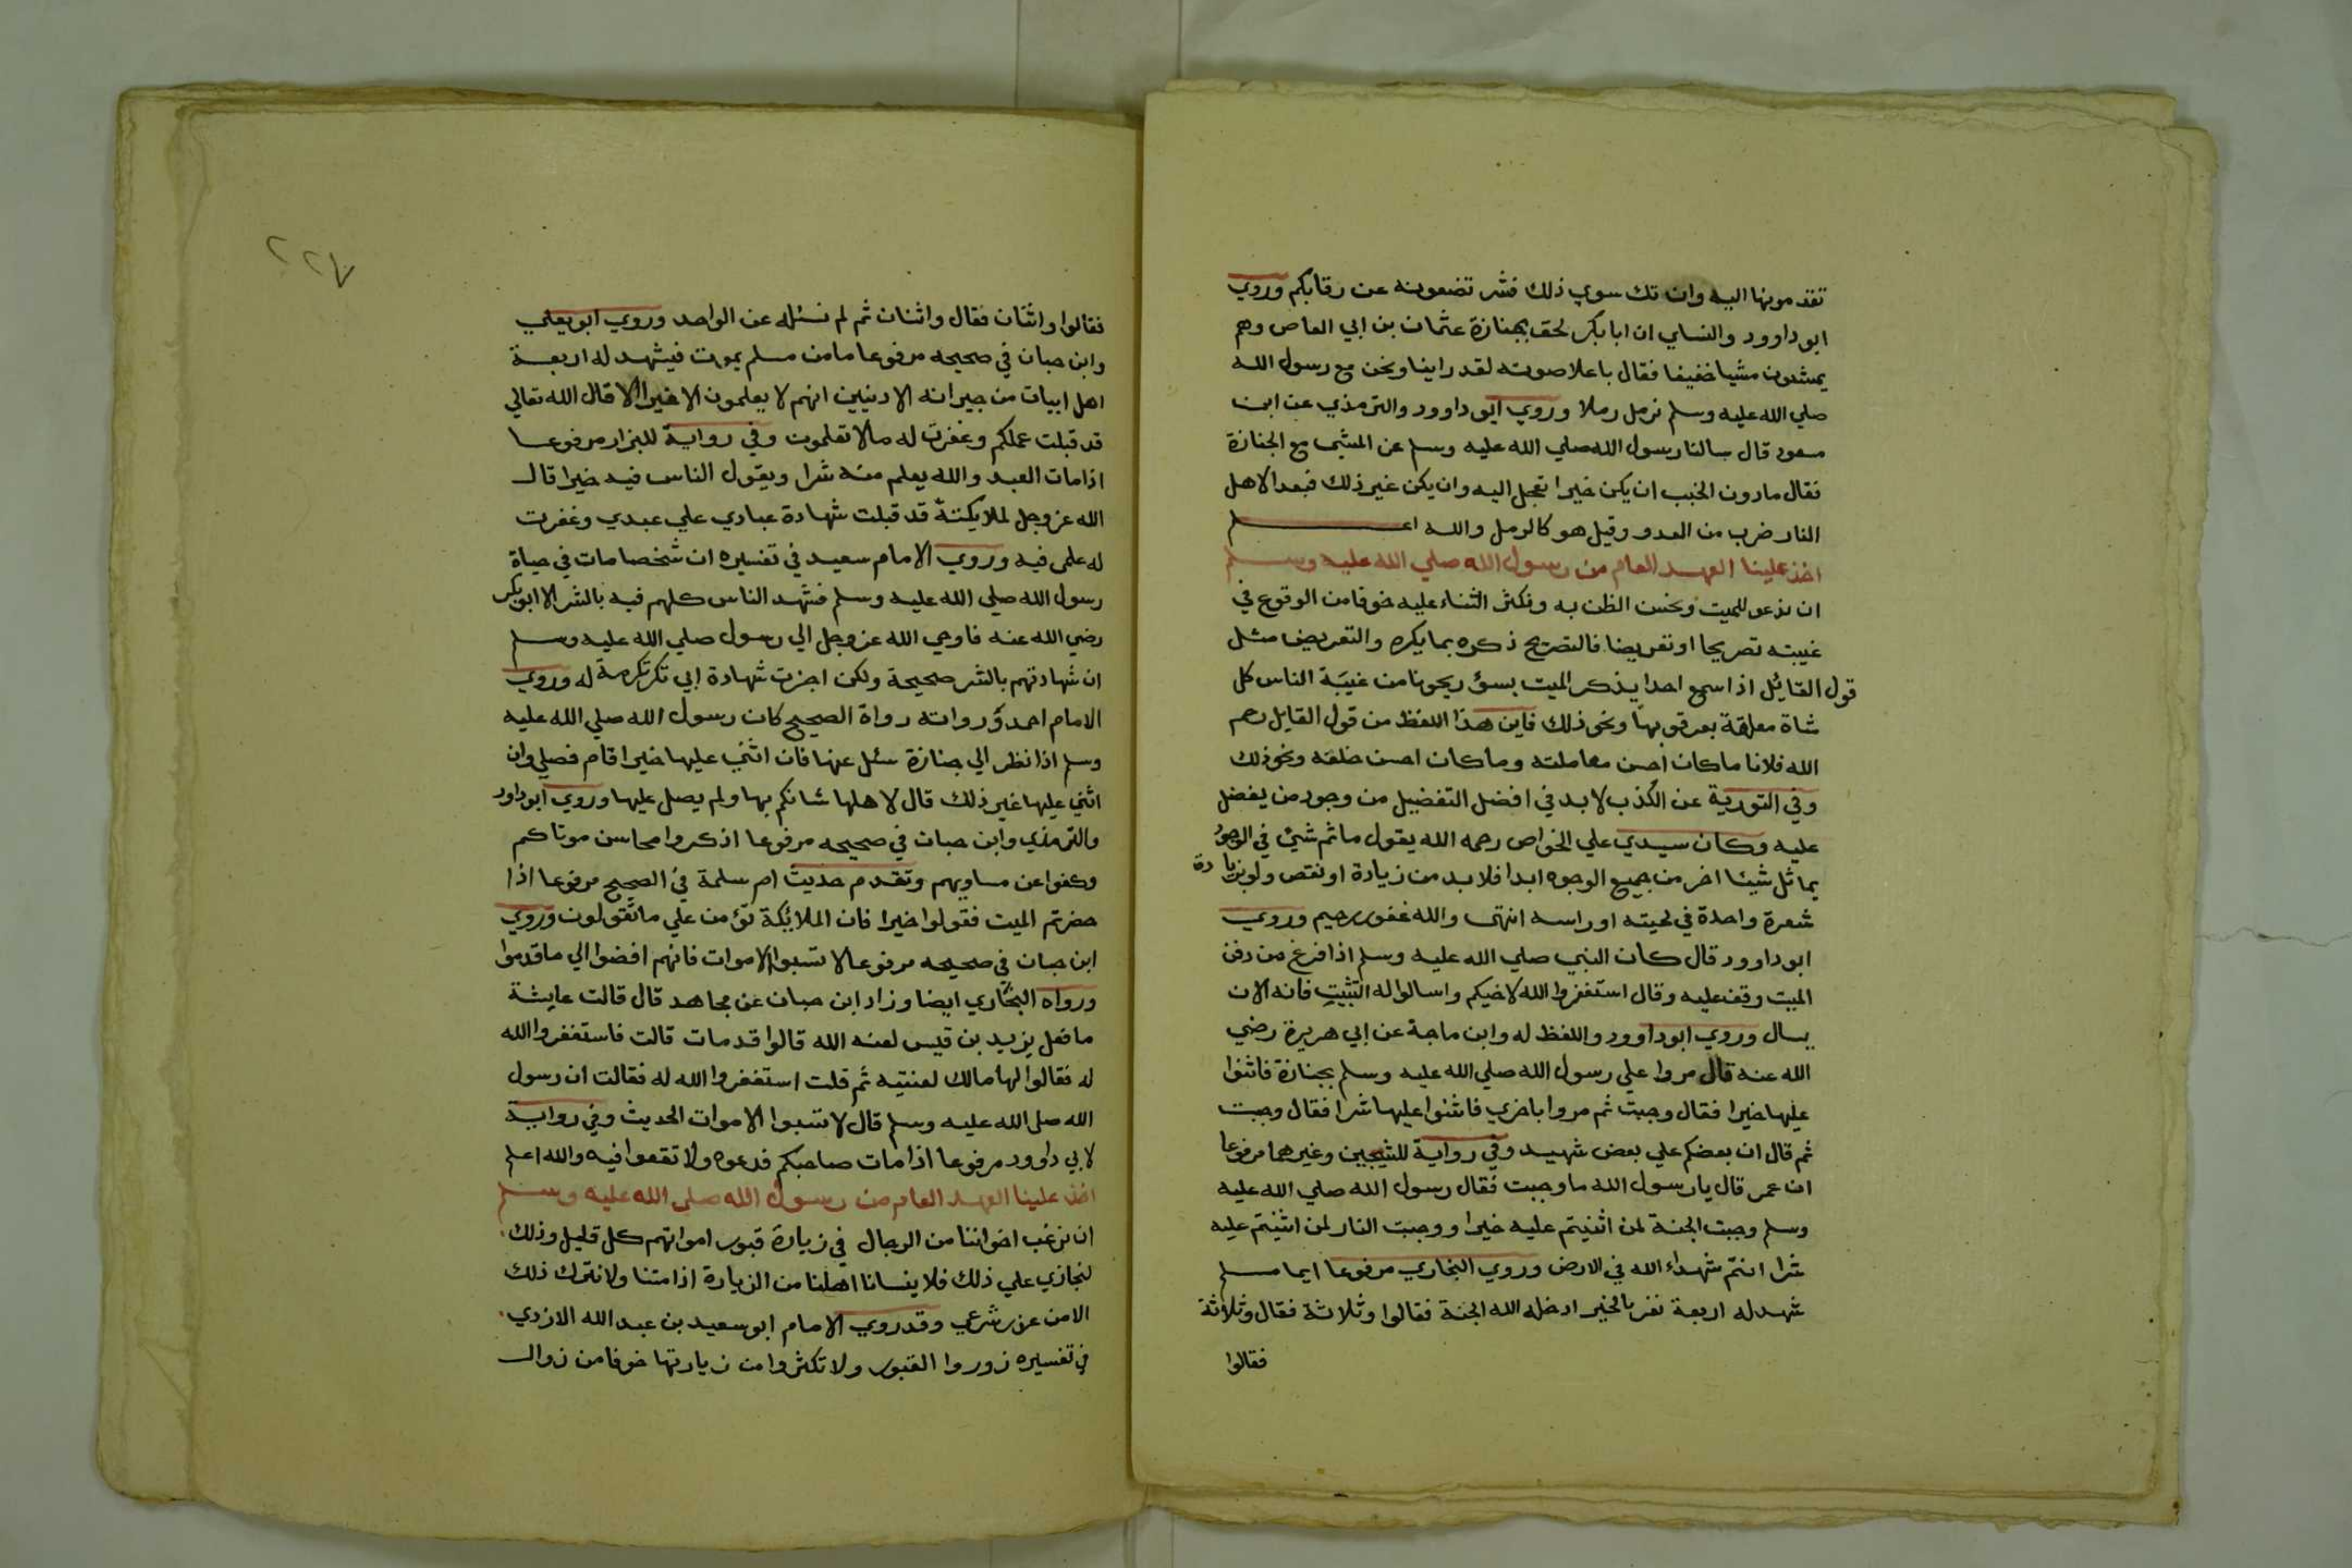 تقدمونها اليه وان تك سوي ذلك فشر تضعونه عن رقابكم وروي
ابو داوود والنساي ان ابا بكر لحق بجنازة عثمان بن ابي العاص وهم
يمشون مشيا خفيفا فقال باعلا صوته لقد راينا ونحن مع رسول الله
صلي الله عليه وسلم نرمل رملا وروي ابو داوود والترمذي عن ابن
مسعود قال سالنا رسول الله صلي الله عليه وسلم عن المشي مع الجنازة
فقال مادون الخبب ان يكن خيرا تعجل اليه وان يكن غير ذلك فبعدا لاهل
النار ضرب من العدو وقيل هو كالرمل والله اعلم
اخذ علينا العهد العام من رسول الله صلي الله عليه وسلم
ان ندعو للميت ونحسن الظن به ونكثر الثناء عليه خوفا من الوقوع في
غيبته تصريحا او تعريضا فالتصريح ذكره بما يكره والتعريض مثل
قول القائل اذا سمع احدا يذكر الميت بسؤ ريحونا من غيبة الناس كل
شاة معلقة بعرقوبها ونحو ذلك فاين هذا اللفظ من قول القايل رحم
الله فلانا ما كان احسن معاملته وما كان احسن خلقه ونحو ذلك
وفي التورية عن الكذب لا بد في افضل التفضيل من وجود من يفضل
عليه وكان سيدي علي الخواص رحمه الله يقول ما ثم شيئ في الوجود
يماثل شيئا اخر من جميع الوجوه ابدا فلا بد من زيادة او نقص ولو بزيادة
شعرة واحدة في لحيته او راسه انتهى والله غفور رحيم وروي
ابو داوود قال كان النبي صلي الله عليه وسلم اذا فرغ من دفن
الميت وقف عليه وقال استغفروا الله لاخيكم واسالوا له التثبيت فانه الان
يسال وروي ابو داوود واللفظ له وابن ماجة عن ابي هريرة رضي
الله عنه قال مروا علي رسول الله صلي الله عليه وسلم بجنازة فاثنوا
عليها خيرا فقال وجبت ثم مروا باخري فاثنوا عليها شرا فقال وجبت
ثم قال ان بعضكم علي بعض شهيد وفي رواية للشيخين وغيرهما مرفوعا
ان عمر قال يا رسول الله ما وجبت فقال رسول الله صلي الله عليه
وسلم وجبت الجنة لمن اثنيتم عليه خيرا ووجبت النار لمن اثنيتم عليه
شرا انتم شهداء الله في الارض وروي البخاري مرفوعا ايما مسلم
شهد له اربعة نفر بالخير ادخله الله الجنة فقالوا وثلاثة فقال وثلاثة
فقالوا
٢٢٧
فقالوا واثنان فقال واثنان ثم لم نسئله عن الواحد وروي ابو يعلي
وابن حبان في صحيحه مرفوعا ما من مسلم يموت فيشهد له اربعة
اهل ابيات من جيرانه الادنيين انهم لا يعلمون الا خيرا الا قال الله تعالي
قد قبلت عملكم وغفرت له ما لا تعلمون وفي رواية للبزار مرفوعا
اذا مات العبد والله يعلم منه شرا ويقول الناس فيه خيرا قال
الله عز وجل لملايكته قد قبلت شهادة عبادي علي عبدي وغفرت
له علمي فيه وروي الامام سعيد في تفسيره ان شخصا مات في حياة
رسول الله صلي الله عليه وسلم فشهد الناس كلهم فيه بالشر الا ابو بكر
رضي الله عنه فاوحي الله عز وجل الي رسول صلي الله عليه وسلم
ان شهادتهم بالشر صحيحة ولكن اجزت شهادة ابي بكر تكرمة له وروي
الامام احمد ورواته رواة الصحيح كان رسول الله صلي الله عليه
وسلم اذا نظر الي جنازة سئل عنها فان اثني عليها خيرا قام فصلي وان
اثني عليها غير ذلك قال لاهلها شانكم بها ولم يصل عليها وروي ابو داود
والترمذي وابن حبان في صحيحه مرفوعا اذكروا محاسن موتاكم
وكفوا عن مساويهم وتقدم حديث ام سلمة في الصحيح مرفوعا اذا
حضرتم الميت فقولوا خيرا فان الملائكة تؤمن علي ما تقولون وروي
ابن حبان في صحيحه مرفوعا لا تسبوا الاموات فانهم افضوا الي ما قدموا
ورواه البخاري ايضا وزاد ابن حبان عن مجاهد قال قالت عايشة
ما فعل يزيد بن قيس لعنه الله قالوا قد مات قالت فاستغفروا الله
له فقالوا لها مالك لعنتيه ثم قلت استغفروا الله له فقالت ان رسول
الله صلي الله عليه وسلم قال لا تسبوا الاموات الحديث وفي رواية
لابي داوود مرفوعا اذا مات صاحبكم فدعوه ولا تقعوا فيه والله اعلم
اخذ علينا العهد العام من رسول الله صلي الله عليه وسلم
ان نرغب اخواننا من الرجال في زيارة قبور امواتهم كل قليل وذلك
لنجازي علي ذلك فلا ينسانا اهلنا من الزيارة اذا متنا ولا نترك ذلك
الا من عذر شرعي وقد روي الامام ابو سعيد بن عبد الله الازدي
في تفسيره زوروا القبور ولا تكثروا من زيارتها خوفا من زوال